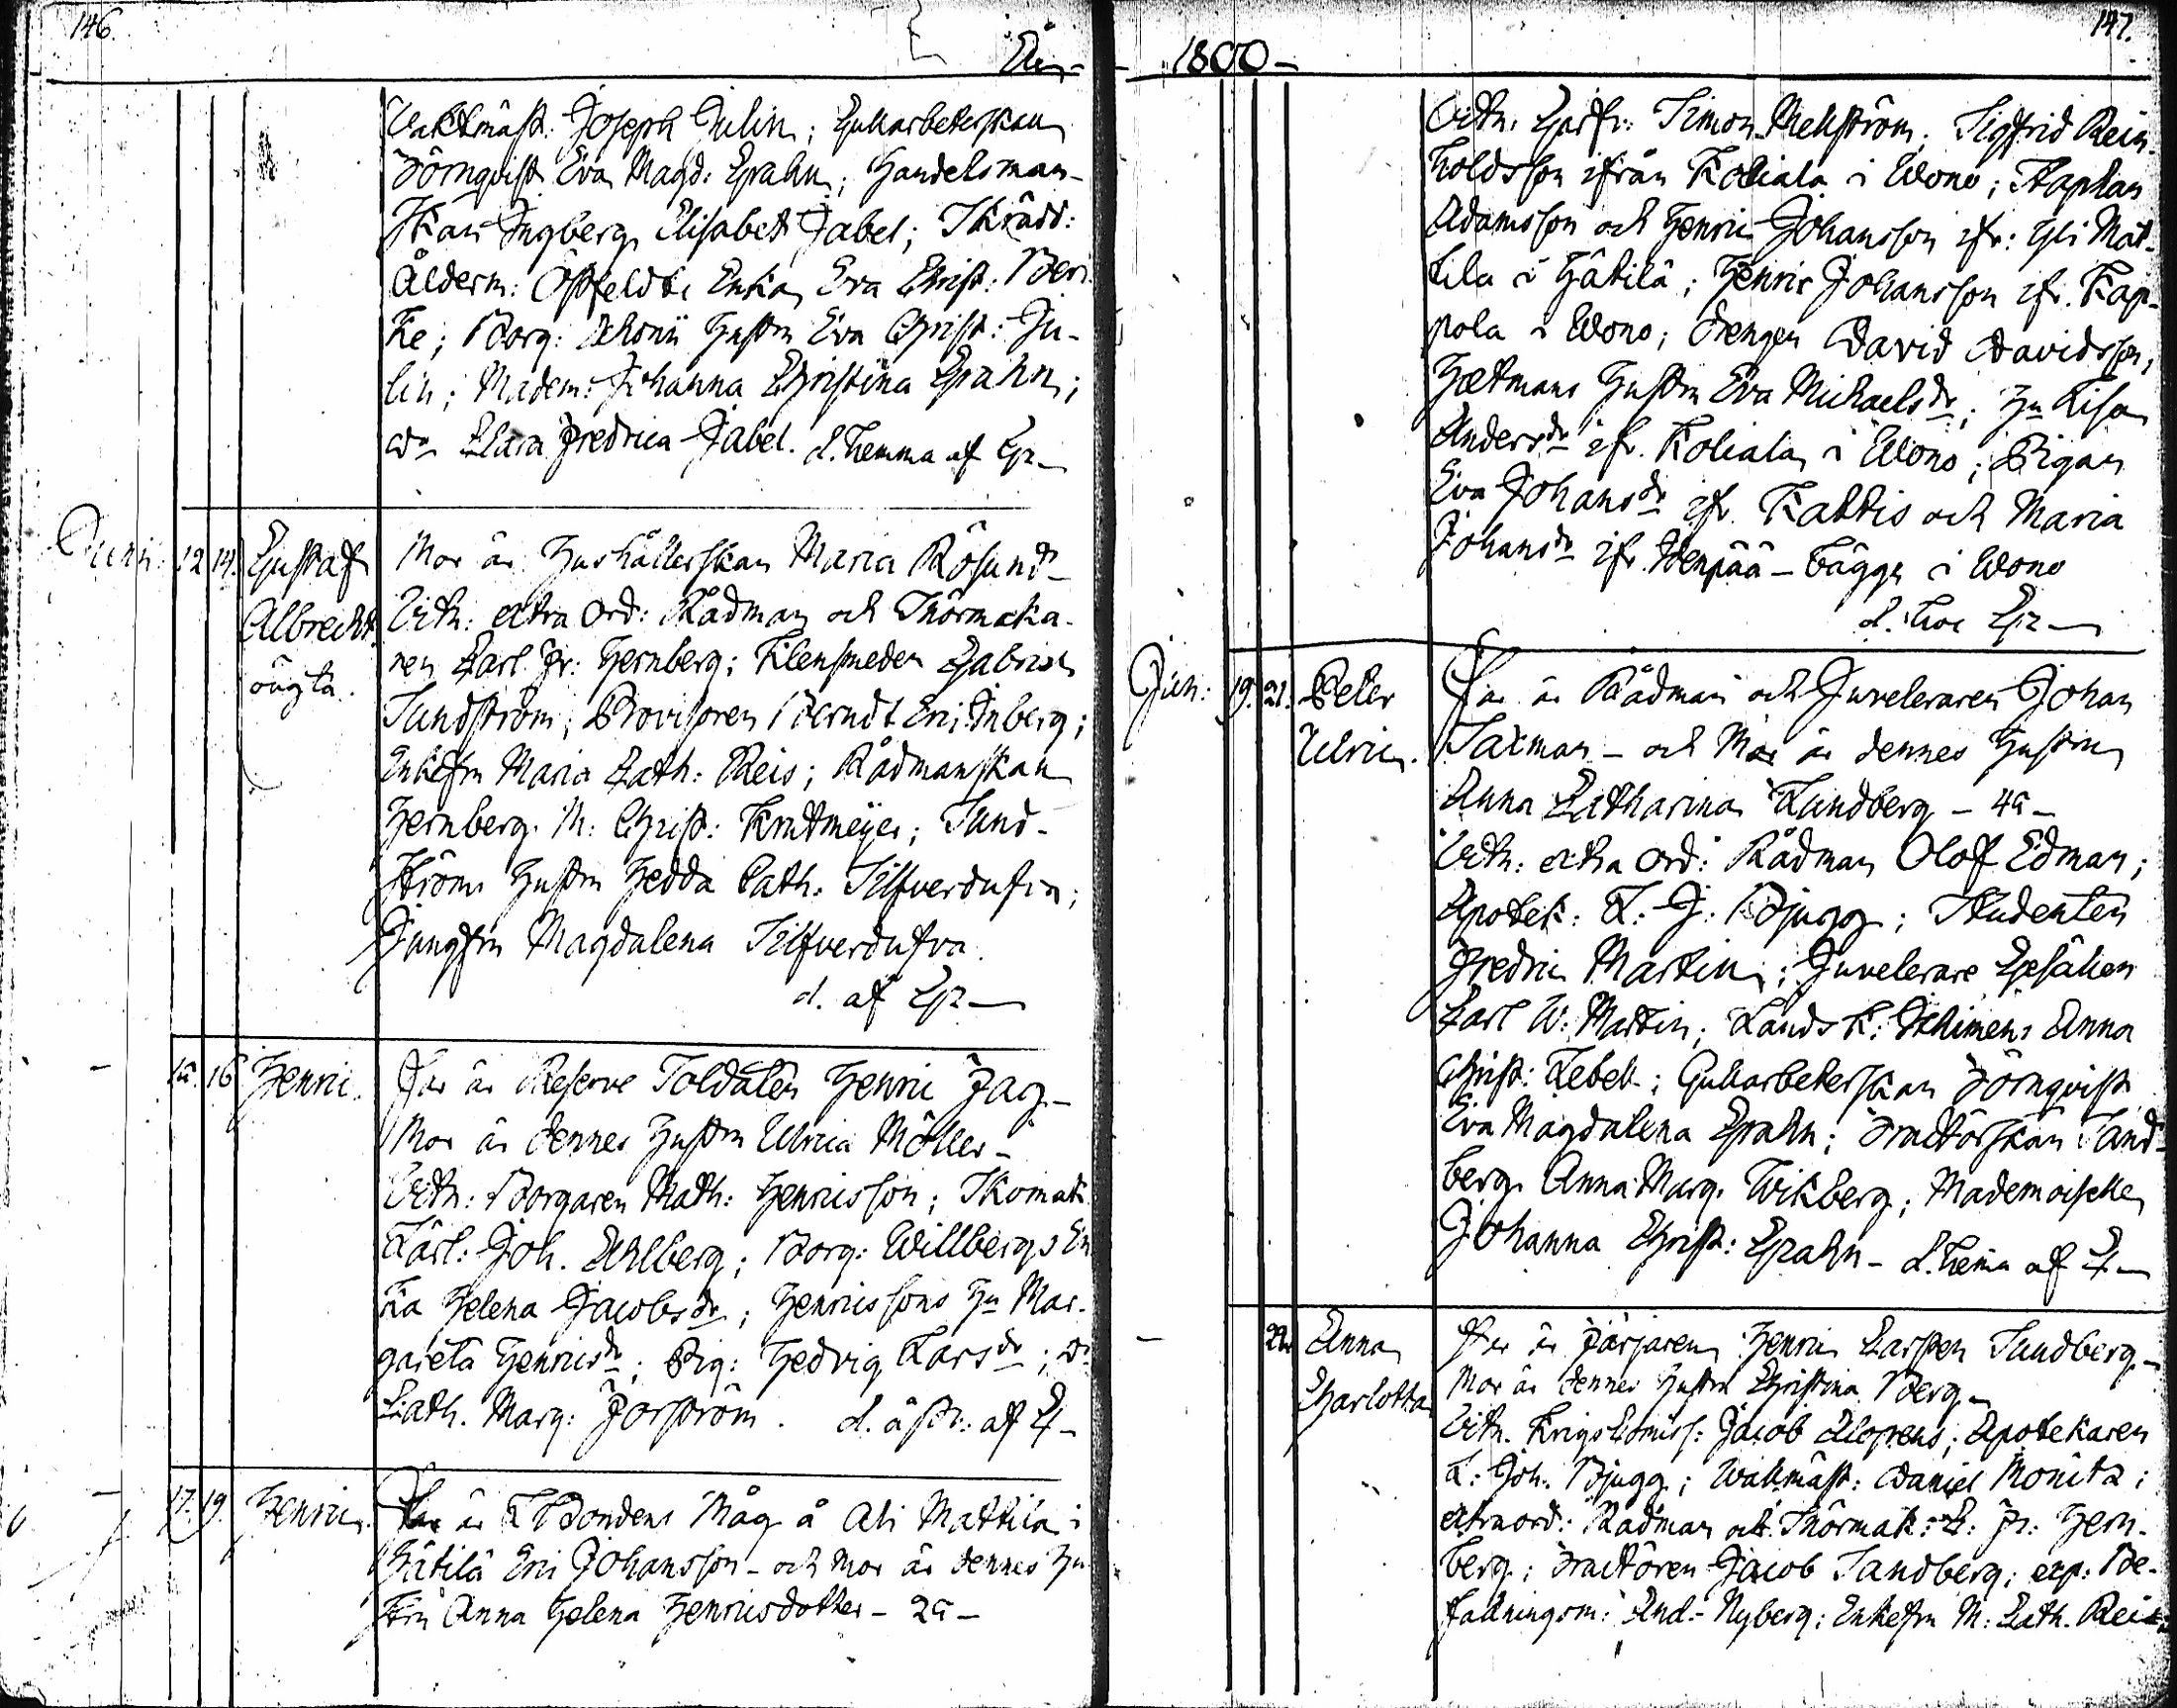 146.
År
Vaktmäst: Joseph Julin; Gullarbeterskan
Törnqvist Eva Magd: Grahn; Handelsman-
skan Ingberg Elisabet Fabel; Skrädd:
Ålderm: Östfeldts Enka Eva Christ:
ke; Borg: hustru Eva Christ: Ju-
lin; Madem: Johanna Christina Grahn;
do Clara Fredrica Fabel. d. hemma af Gr
Junii. 12 14. Gustaf
Albrecht
oägta.
Mor är Hushållerskan Maria Rösund-
Vitn: extra Ord: Rådman och Snörmaka-
ren Carl Fr: Hernberg; Klensmeden Gabriel
Sundström; Provisoren Berndt Eric Inberg;
Enkefru Maria Cath: Reis; Rådmanskan
Hernberg M: Christ: Krutmeijer; Sund-
ströms Hustru Hedda Cath: Silfverdufva;
Jungfru Magdalena Silfverdufva.
d. af Gr
16 Henric.
Far är Reserve Soldaten Henric Jag-
Mor är dennes Hustru Ulrica Möller-
Vitn: Borgaren Math: Henricsson; Skomak.
Lärl: Joh. Ahlberg; Borg: Willbergs En
ka Helena Jacobsdr; Henricssons Hu Mar-
gareta Henricsdr; Pig: Hedvig Larsdr; do
Cath. Marg: Forström. d. af
17. 19. Henric.
Far är Bondens Måg å Ali Mattila i
Hätilä Eric Johansson- och Mor är dennes Hu
stru Anna Helena Henricsdotter- 2a-
1800-
147.
Vitn: Simon Mellström; Sigfrid Rein-
holdsson ifrån Koliala i Wånå; Staphan
Adamsson och Henric Johansson ifr: Yli Mat-
tila i Hätilä; Henric Johansson ifr. Kap-
pola i Wånå; drengen David Davidsson;
Hustru Eva Michaelsdr; Hu Lisa
Andersdr ifr. Koliala i Wånå; Pigan
Eva Johansdr ifr. Kattis och Maria
Johansdr ifr. i Wånå
d. hos Gr
Jun: 19. 21. Peter
Ulric.
Far är Rådman och Juveleraren Johan
Saxman- och Mor är dennes Hustru
Anna Catharina Lundberg - 4a-
Vitn: extra Ord: Rådman Olof Edman;
Apotek: L: J: Bjugg; Studenten
Fredric Martin; Juvelerare Gesällen
Carl W: Martin; Lands K: Anna
Christ: Lebell; Gullarbeterskan Törnqvist
Eva Magdalena Grahn; Tractörskan Sand-
berg Anna Marg. Wikberg; Mademoiselle
Johanna Christ: Grahn- d. hema af
Anna
Charlotta
Far är Färjaren Henric Sundberg-
Mor är dennes Hustru Christina Berg-
Vitn. Krigs Comiss: Jacob Clopeus; Apotekaren
L: Joh. Bjugg; Waktmäst: Daniel Monitz;
extraord: Rådman och Snörmak: C: Fr: Hern-
berg; Tractören Jacob Sandberg; exp: Be-
fallningsm: And: Nyberg; Enkefru M: Cath. Reis